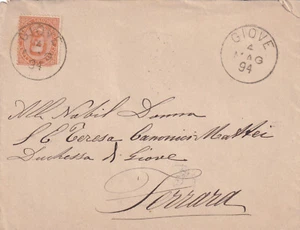 GIOVE
4
MAG
94
GIOVE
4
MAG
94
Alla Nobil Donna
S. E. Teresa Canonici Mattei
Duchessa di Giove
Ferrara